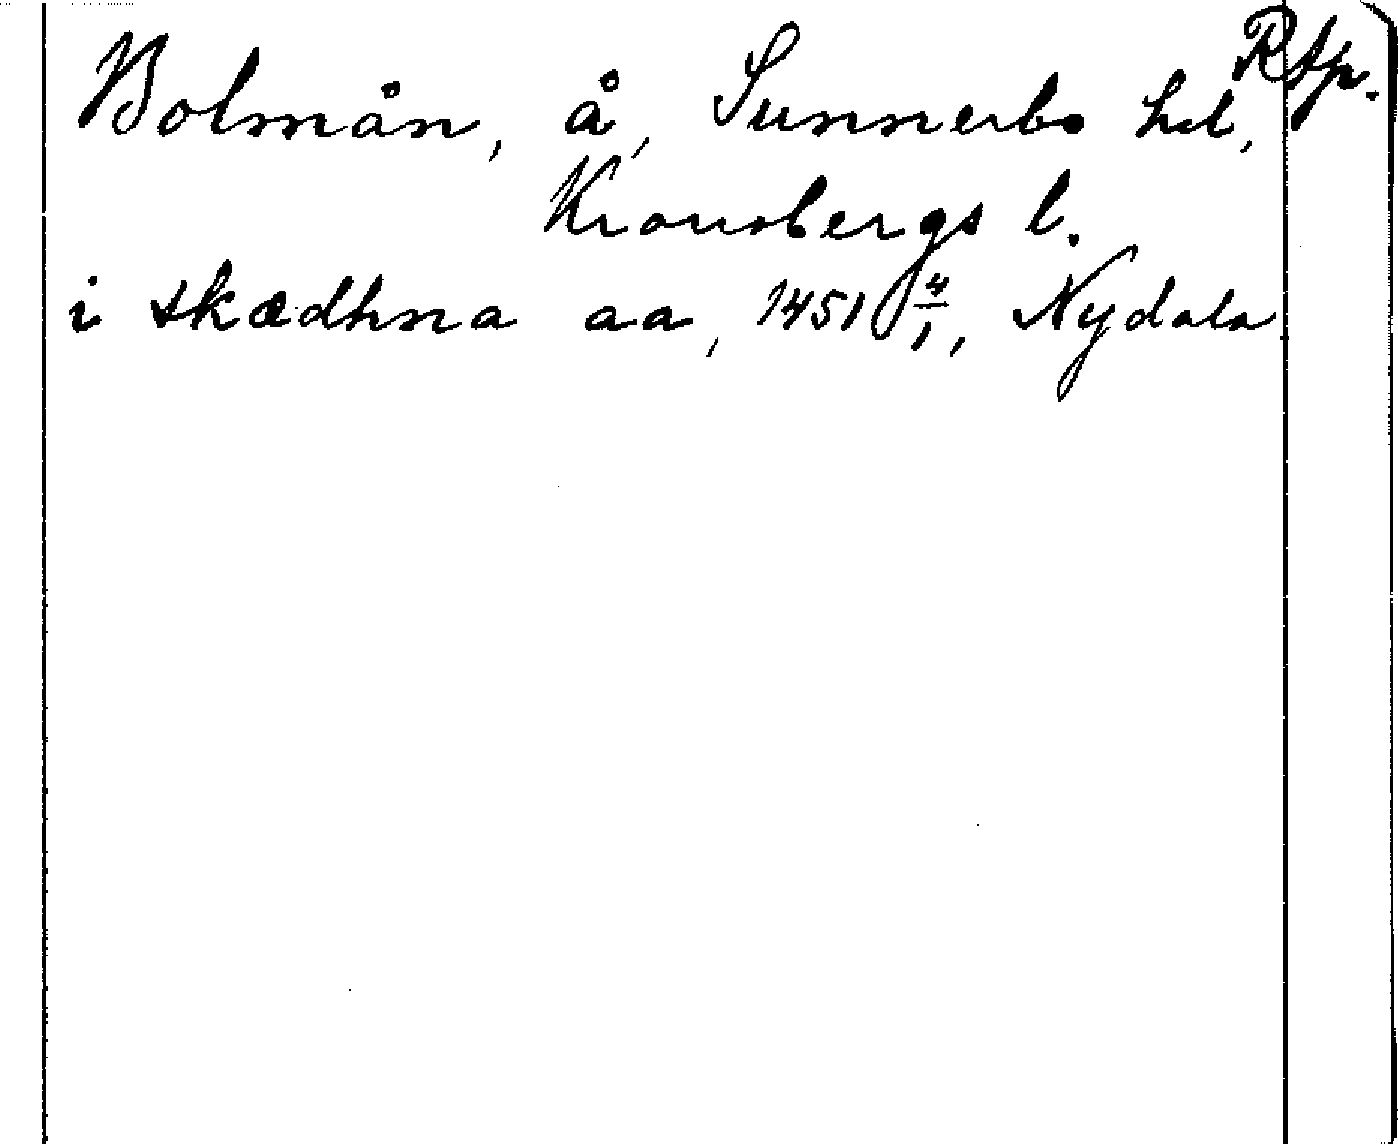 RAp.
Bolmån, å, Sunnerbo hd,
Kronobergs l.
i skædhna aa, 1451 4/1, Nydala